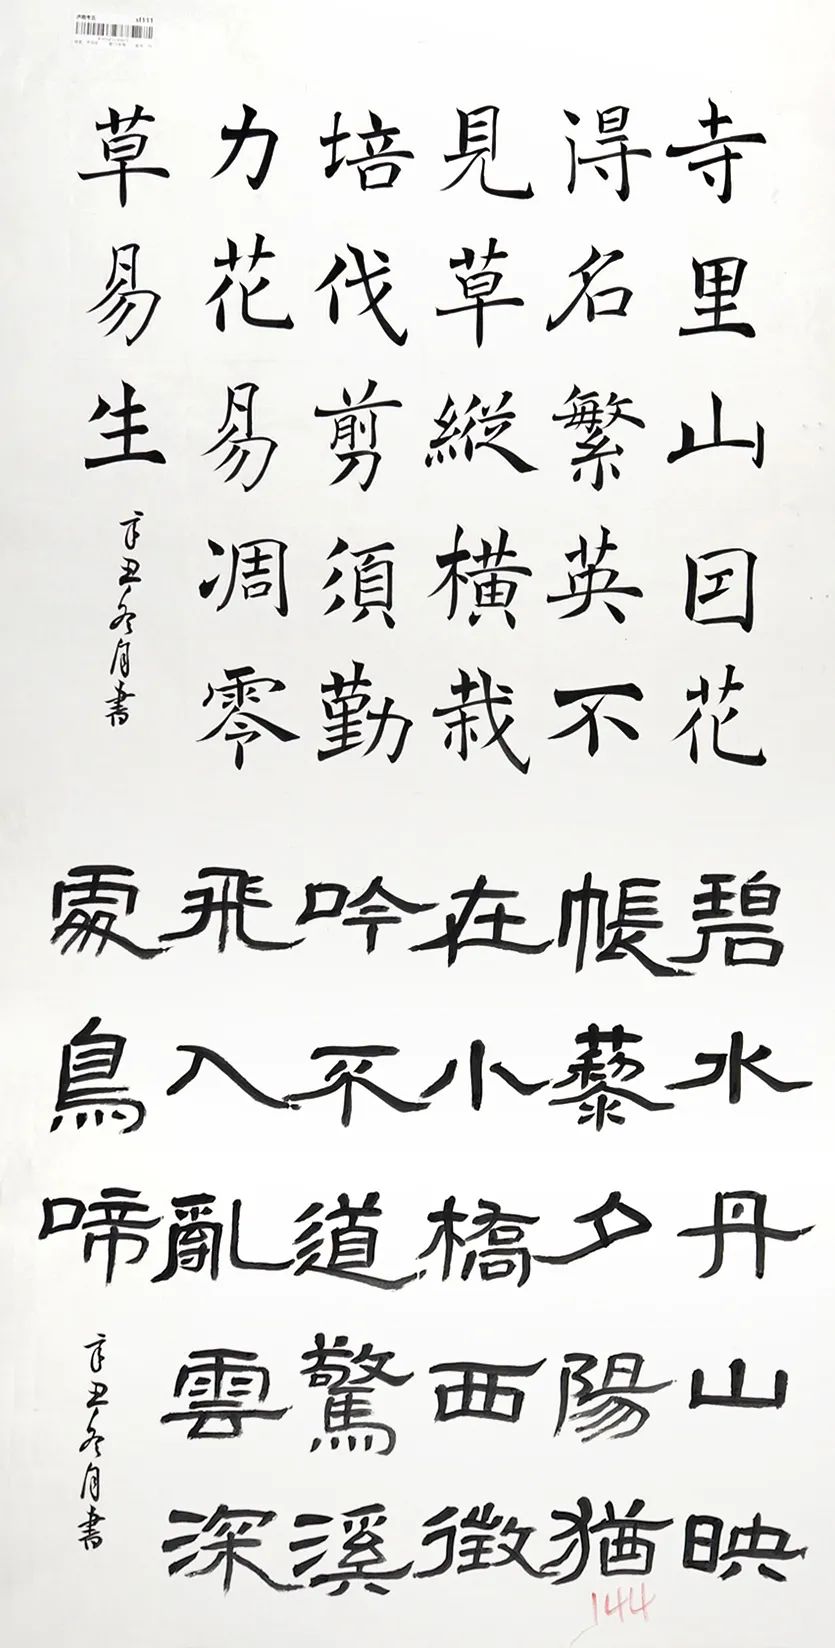 寺里山囙花
淂名繁英不
見草縱橫栽
培伐剪須勤
力花易凋零
草易生
辛丑冬月書
碧水丹山映
帳藜夕陽猶
在小橋西微
吟不道驚溪
飛入亂雲深
處鳥啼
辛丑冬月書
144